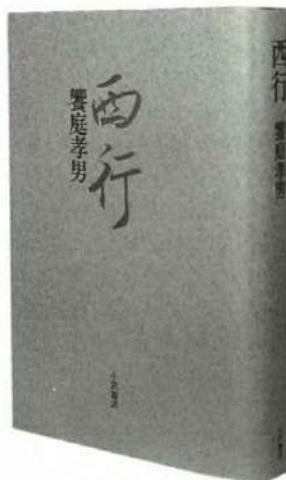 西行
饗庭孝男
小沢書店
西行
饗庭孝男
小沢書店